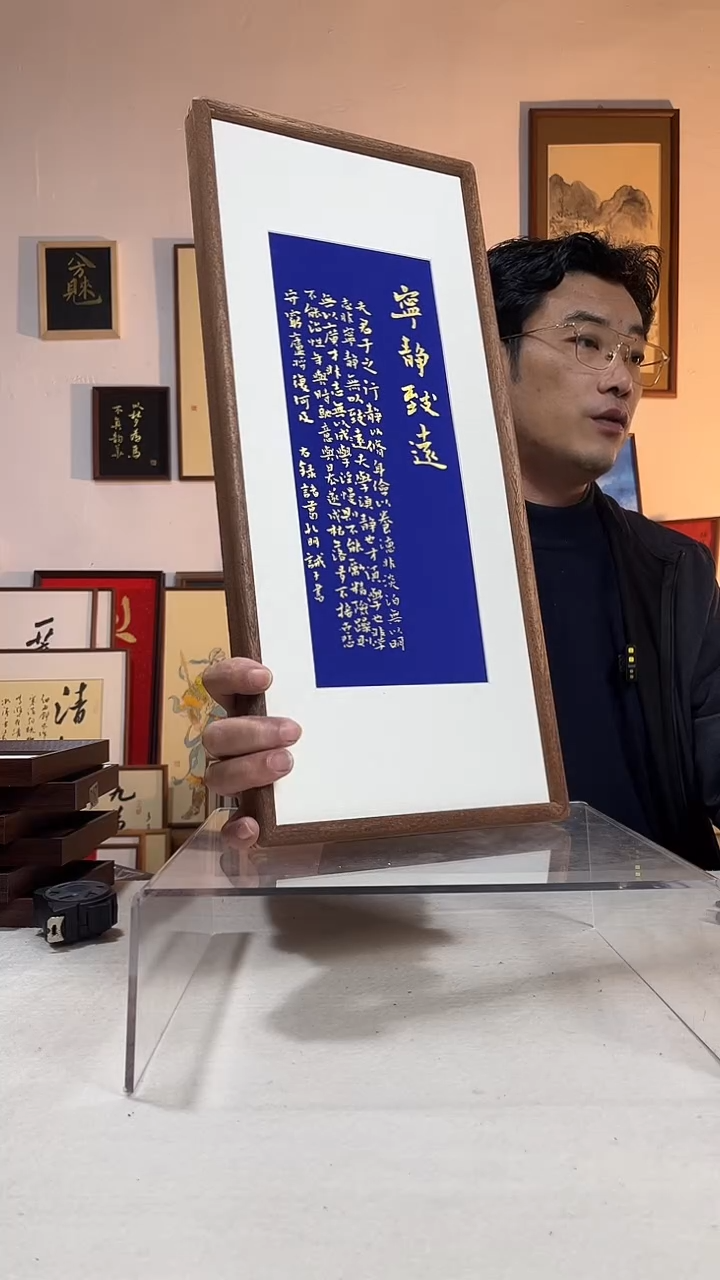 寧靜致遠
夫君子之行靜以脩身儉以養德非淡泊無以明
志非寧靜無以致遠夫學須靜也才須學也非學
無以廣才非志無以成學淫慢則不能勵精險躁則
不能治性年與時馳意與日去遂成枯落多不接世悲
守窮廬將復何及 右錄諸葛孔明誡子書
以夢為馬
不負韶華
清
九